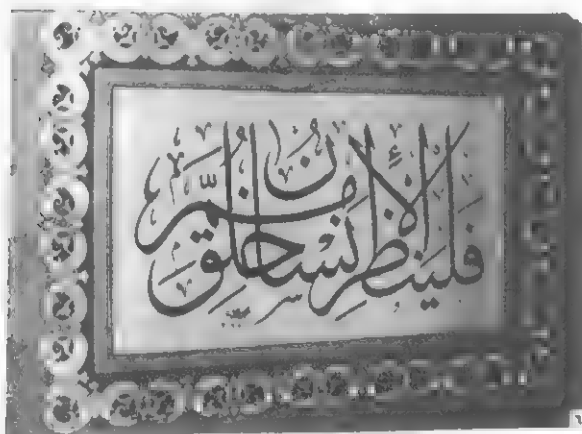 فلينظر الإنسان مم خلق